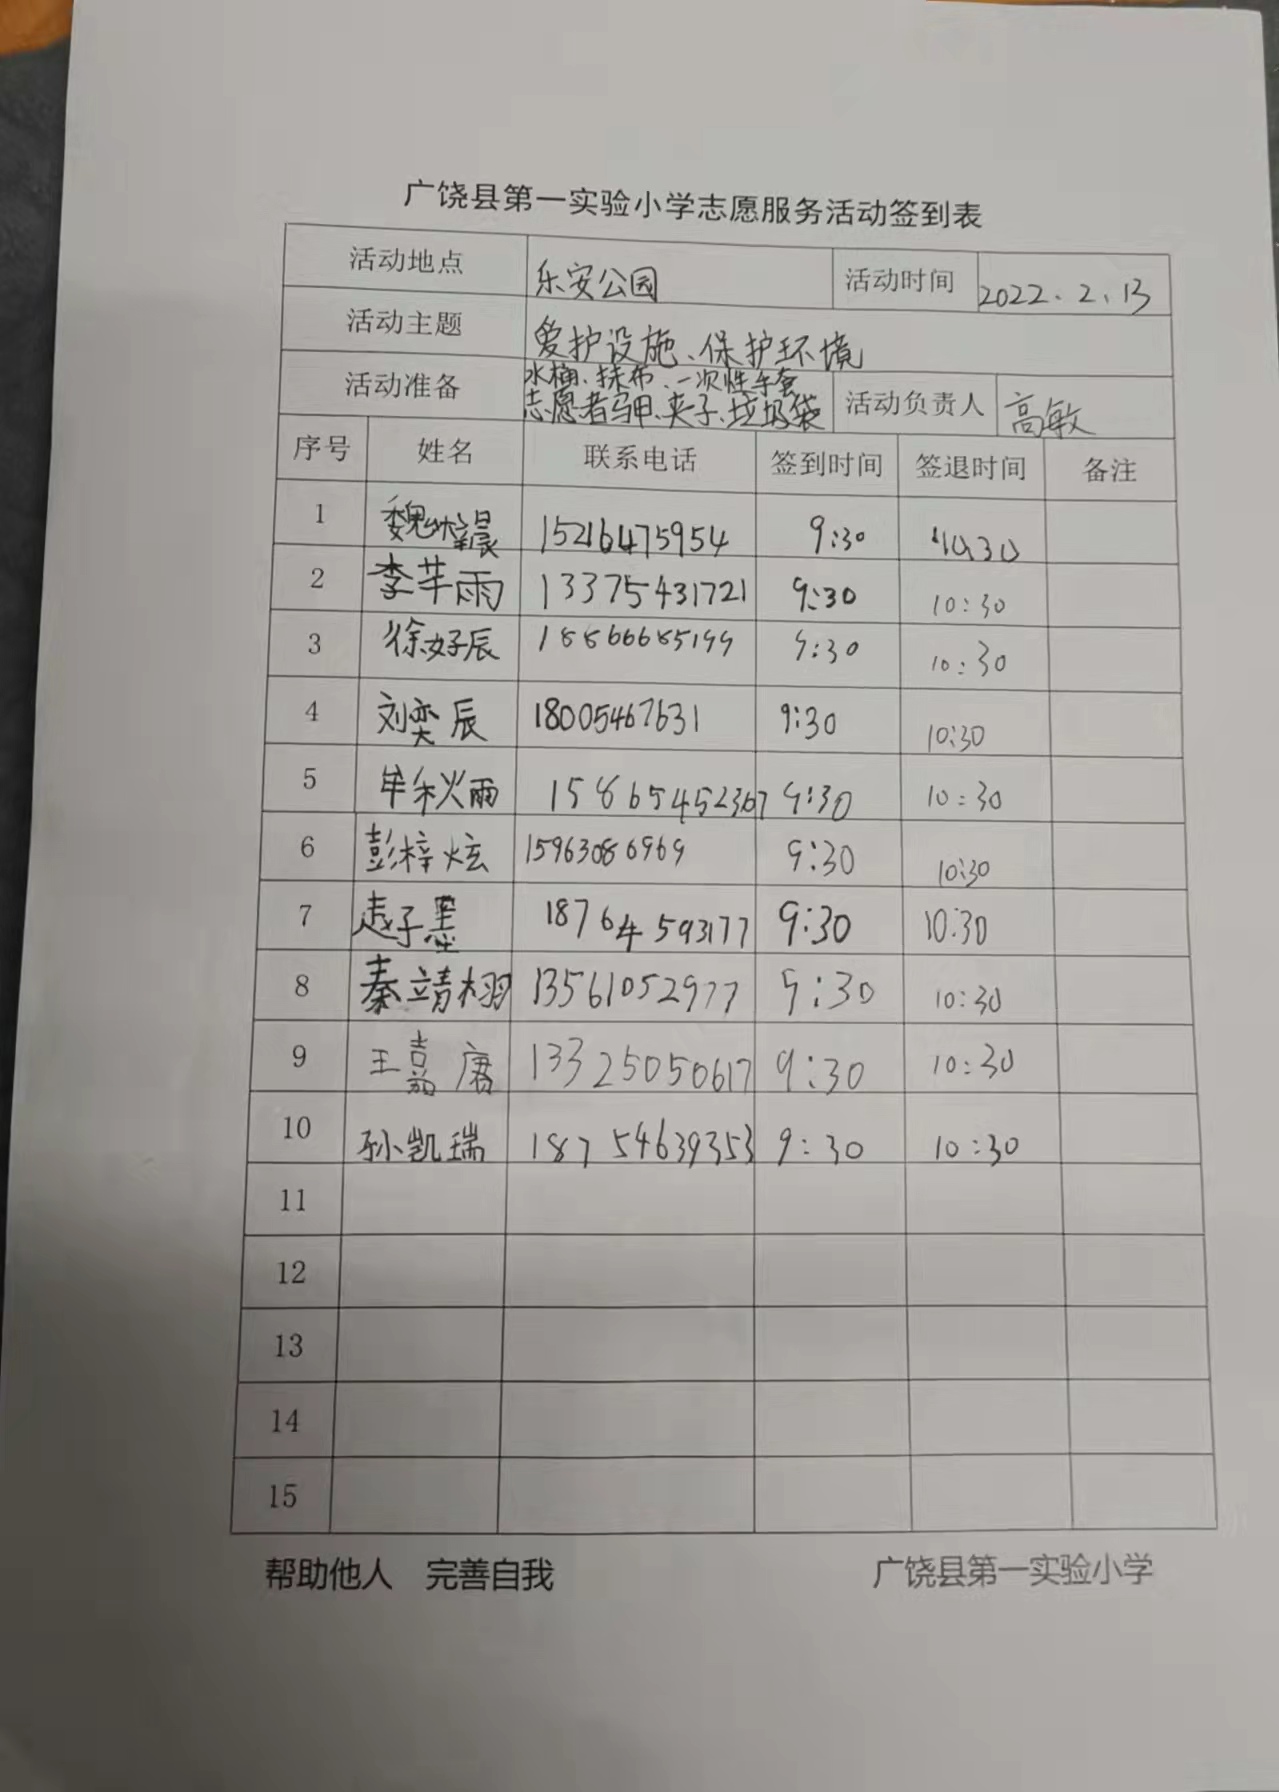 广饶县第一实验小学志愿服务活动签到表
活动地点 乐安公园 活动时间 2022.2.13
活动主题 爱护设施、保护环境
活动准备 水桶、抹布、一次性手套
志愿者马甲、夹子、垃圾袋 活动负责人 高敏
序号 姓名 联系电话 签到时间 签退时间 备注
1 魏 晨 15216475954 9:30 10:30
2 李芊雨 13375431721 9:30 10:30
3 徐好辰 18866685199 9:30 10:30
4 刘奕辰 18005467631 9:30 10:30
5 牟秋雨 15865452367 9:30 10:30
6 彭梓炫 15963086969 9:30 10:30
7 赵子墨 18764593177 9:30 10:30
8 秦靖栩 13561052977 9:30 10:30
9 王嘉 13325050617 9:30 10:30
10 孙凯瑞 18754639353 9:30 10:30
11
12
13
14
15
帮助他人 完善自我 广饶县第一实验小学